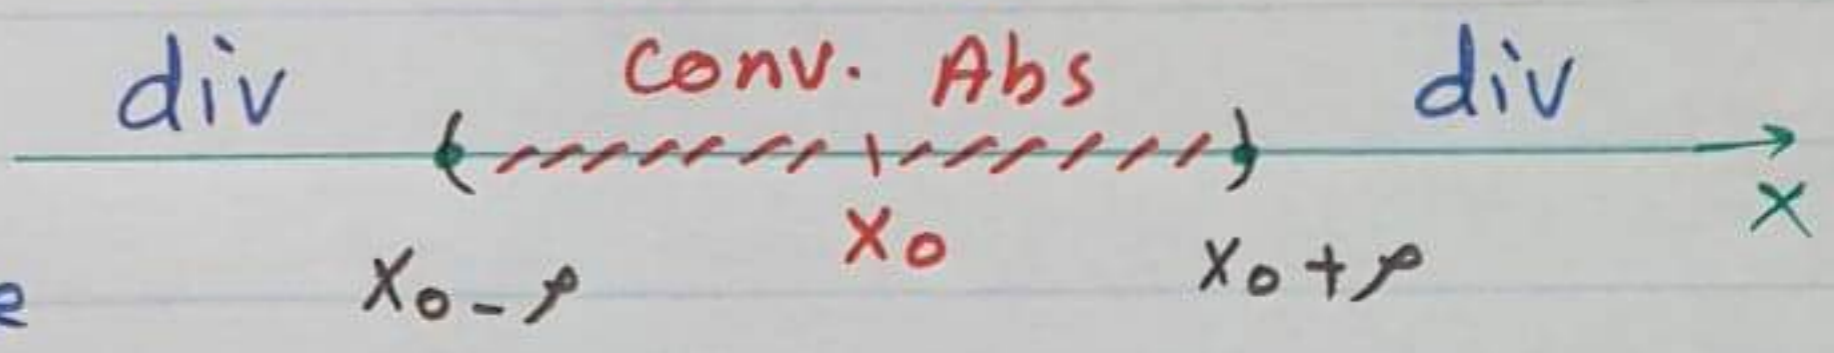 div Conv. Abs div
x
x₀
e x₀-ρ x₀+ρ